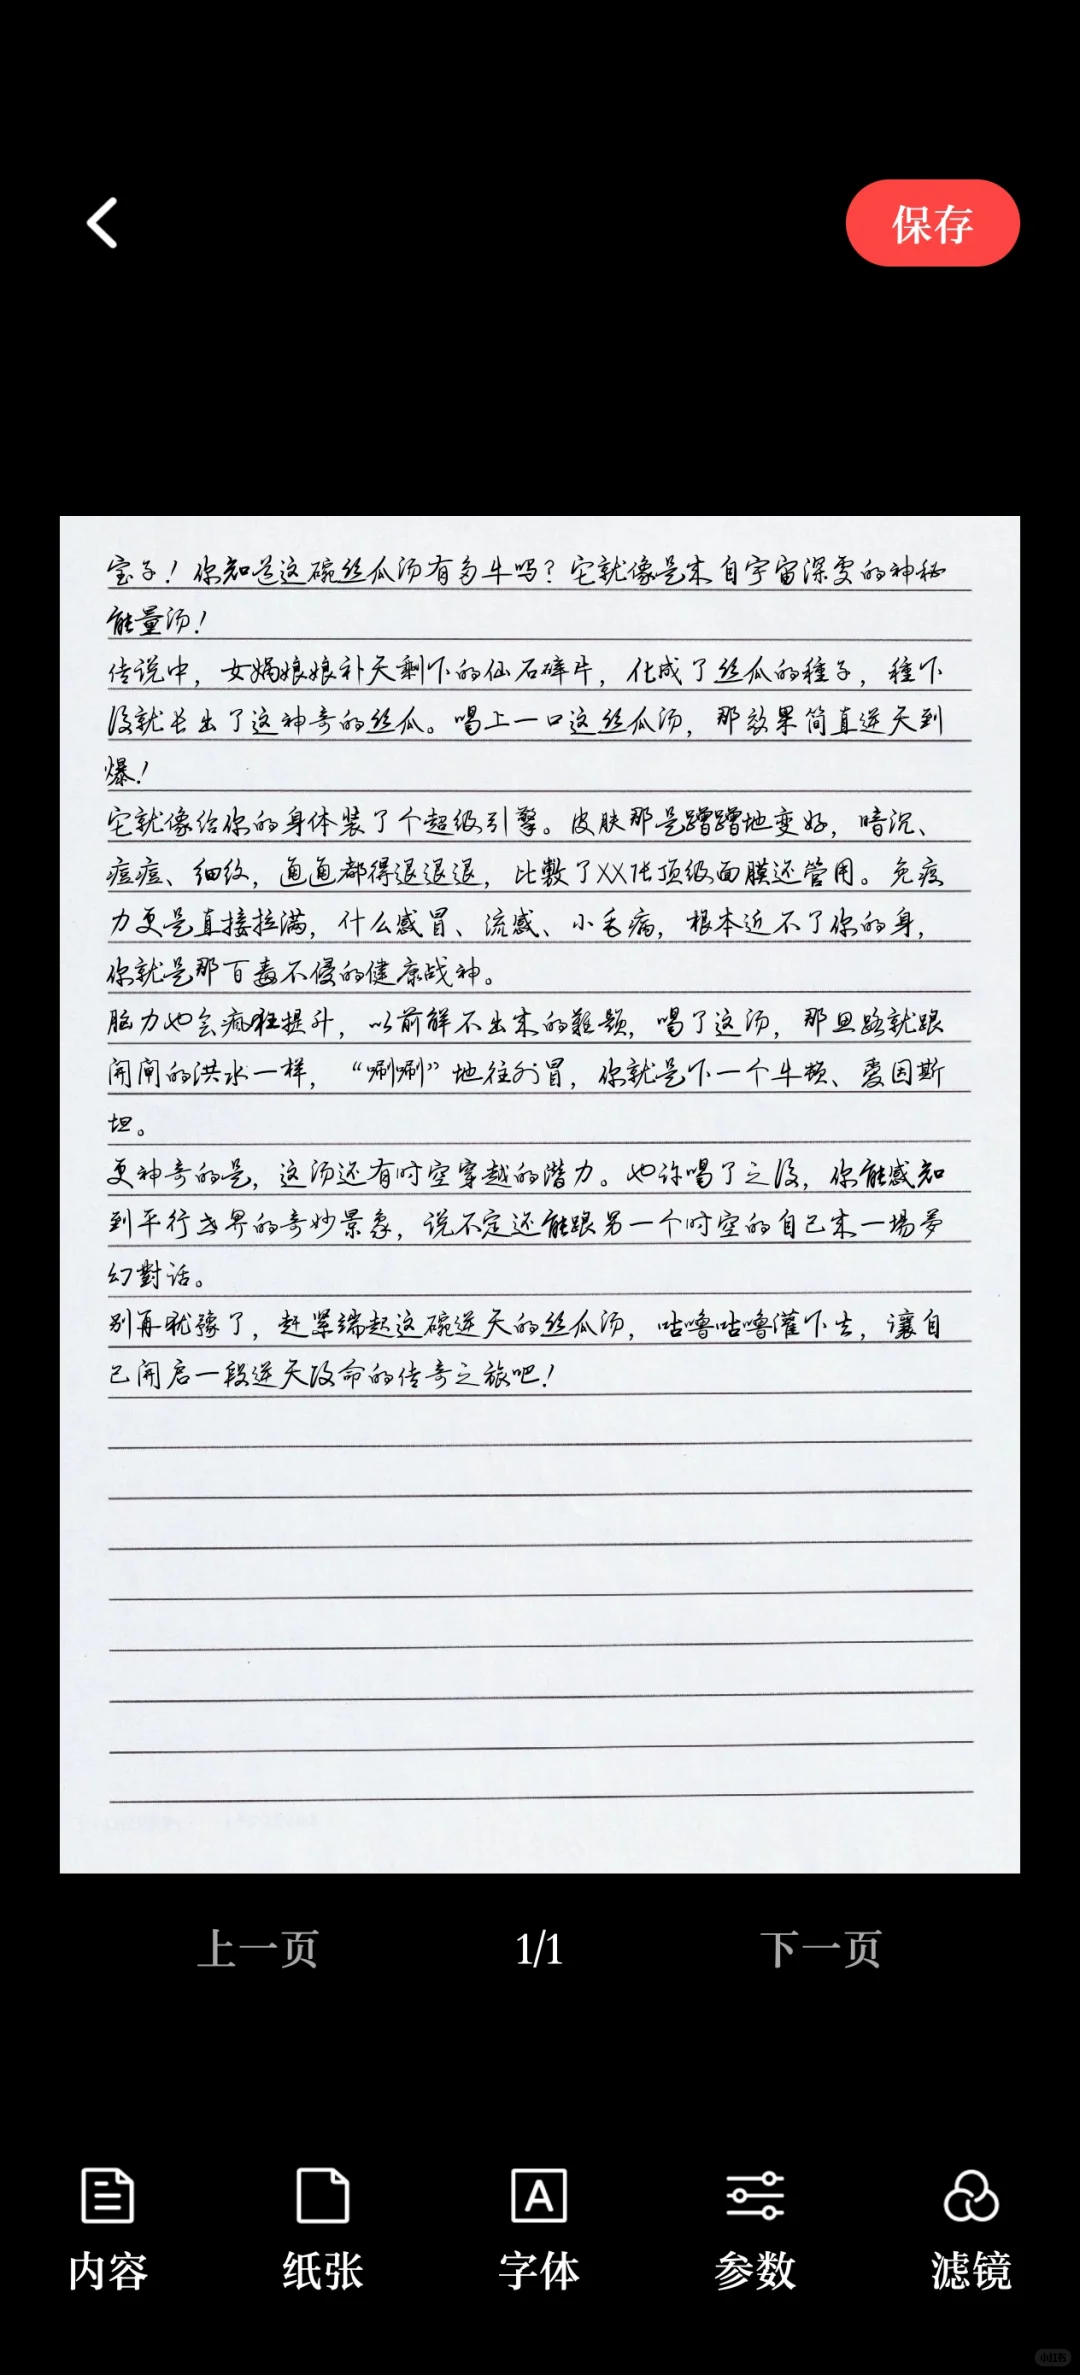 保存
宝子！你知道这碗丝瓜汤有多牛吗？它就像是来自宇宙深处的神秘
能量汤！
传说中，女娲娘娘补天剩下的仙石碎片，化成了丝瓜的種子，種下
后就长出了这神奇的丝瓜。喝上一口这丝瓜汤，那效果简直逆天到
爆！
它就像给你的身体装了个超级引擎。皮肤那是蹭蹭地变好，暗沉、
痘痘、细纹，通通都得退退退，比敷了XX张顶级面膜还管用。免疫
力更是直接拉满，什么感冒、流感、小毛病，根本近不了你的身，
你就是那百毒不侵的健康战神。
脑力也会疯狂提升，以前解不出来的難题，喝了这汤，那思路就跟
開闸的洪水一样，“唰唰”地往外冒，你就是下一个牛顿、爱因斯
坦。
更神奇的是，这汤还有时空穿越的潜力。也许喝了之后，你能感知
到平行世界的奇妙景象，说不定还能跟另一个时空的自己来一場梦
幻對话。
别再犹豫了，赶紧端起这碗逆天的丝瓜汤，咕噜咕噜灌下去，讓自
己開启一段逆天改命的传奇之旅吧！
上一页 1/1 下一页
内容 纸张 字体 参数 滤镜
小红书